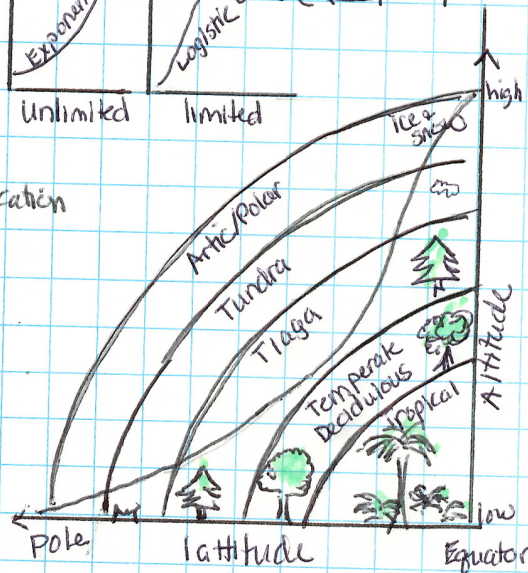 Exponen
Logistic
unlimited
limited
high
ice &
snow
cation
Artic/Polar
Tundra
Tiaga
Temperate
Decidulous
Tropical
Altitude
low
Pole
lattitude
Equator